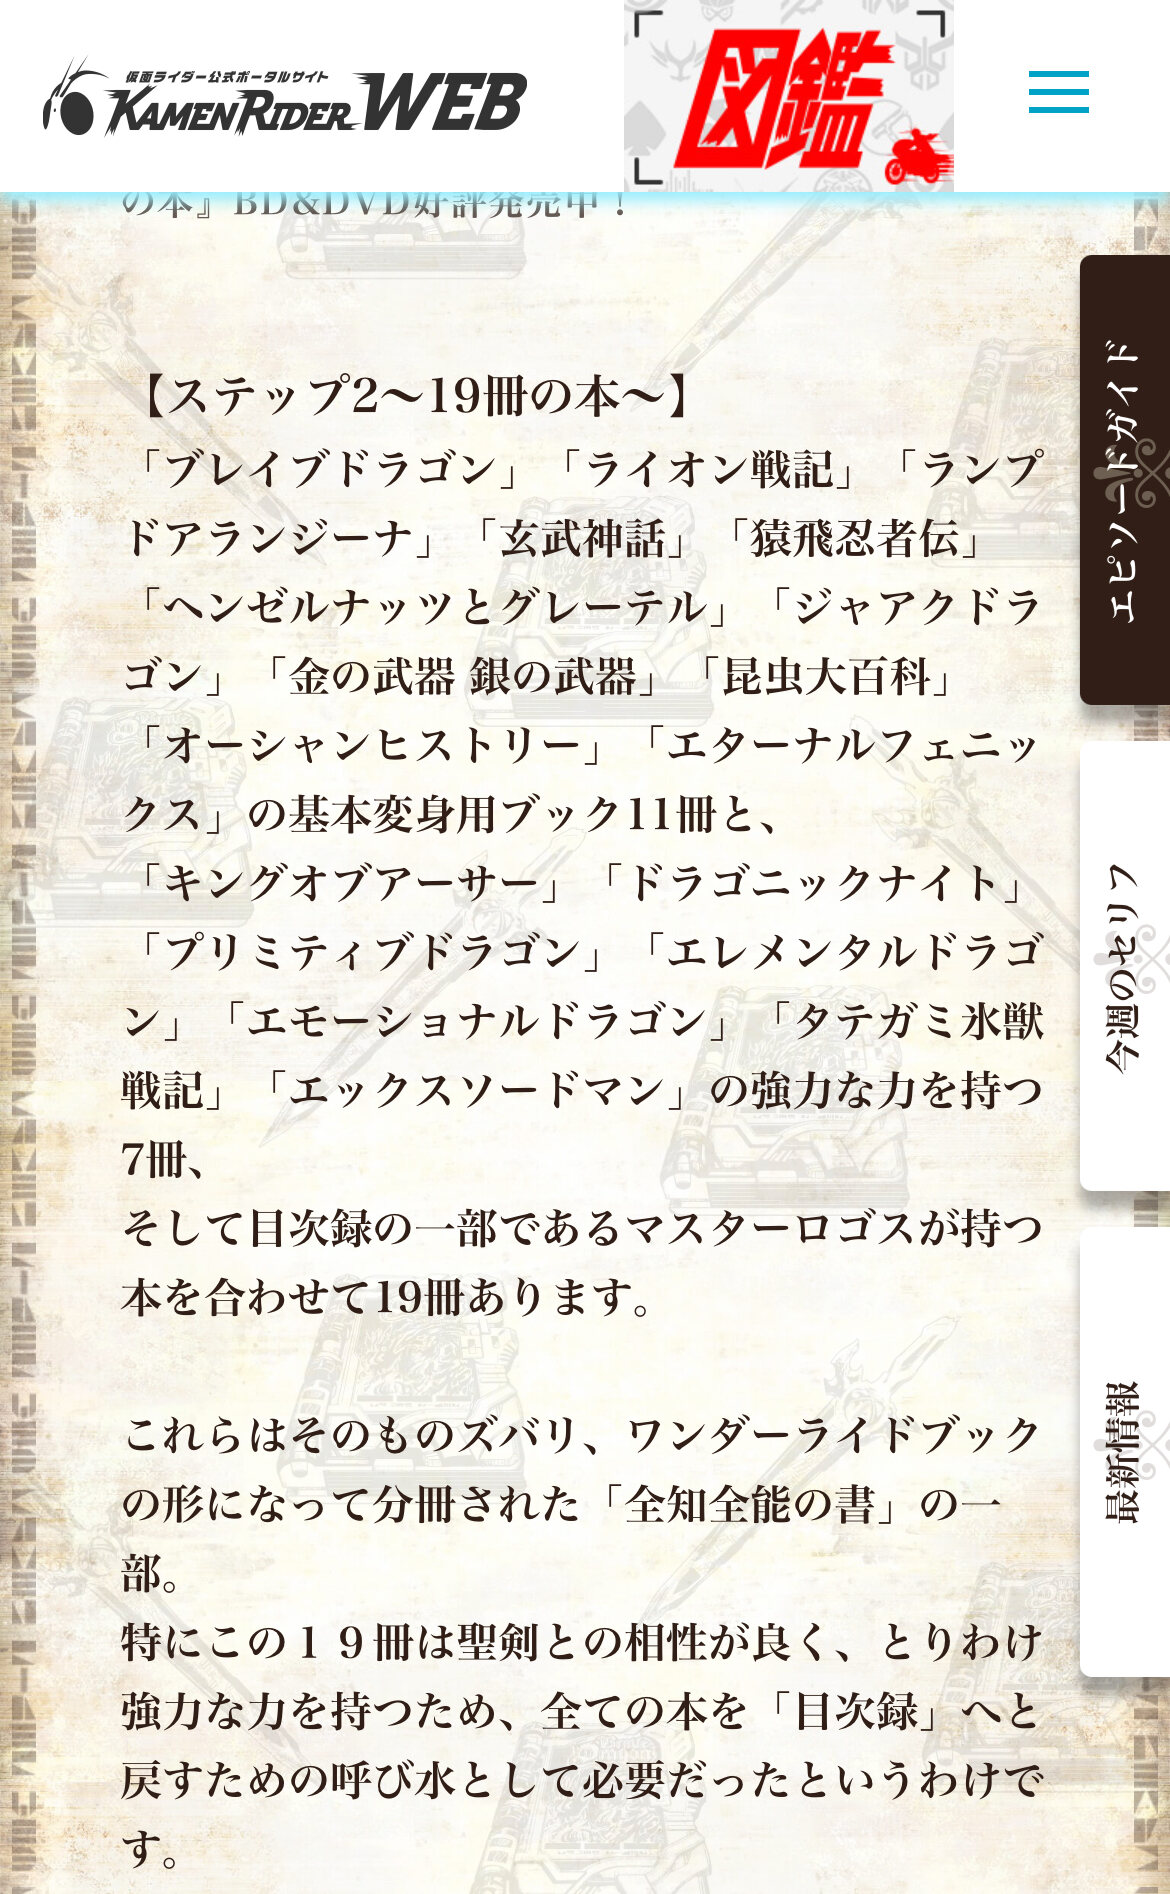 仮面ライダー公式ポータルサイト
KAMEN RIDER WEB
図鑑
の本』BD&DVD好評発売中！
【ステップ2〜19冊の本〜】
「ブレイブドラゴン」「ライオン戦記」「ランプ
ドアランジーナ」「玄武神話」「猿飛忍者伝」
「ヘンゼルナッツとグレーテル」「ジャアクドラ
ゴン」「金の武器 銀の武器」「昆虫大百科」
「オーシャンヒストリー」「エターナルフェニッ
クス」の基本変身用ブック11冊と、
「キングオブアーサー」「ドラゴニックナイト」
「プリミティブドラゴン」「エレメンタルドラゴ
ン」「エモーショナルドラゴン」「タテガミ氷獣
戦記」「エックスソードマン」の強力な力を持つ
7冊、
そして目次録の一部であるマスターロゴスが持つ
本を合わせて19冊あります。
これらはそのものズバリ、ワンダーライドブック
の形になって分冊された「全知全能の書」の一
部。
特にこの１９冊は聖剣との相性が良く、とりわけ
強力な力を持つため、全ての本を「目次録」へと
戻すための呼び水として必要だったというわけで
す。
エピソードガイド
今週のセリフ
最新情報